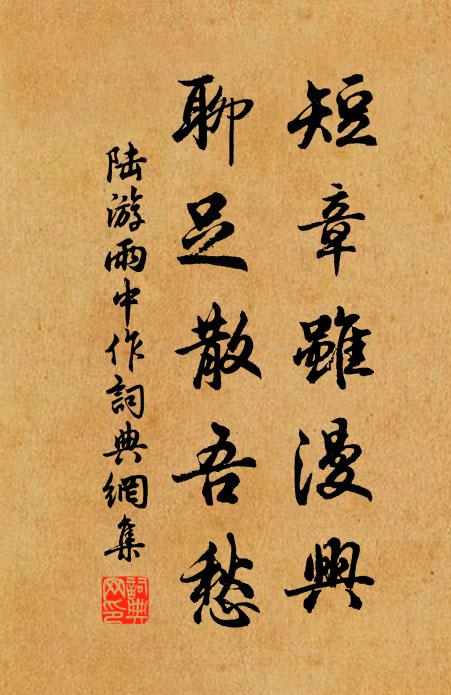 短章雖漫興
聊足散吾愁
陸游雨中作詞典網集
詞典網印